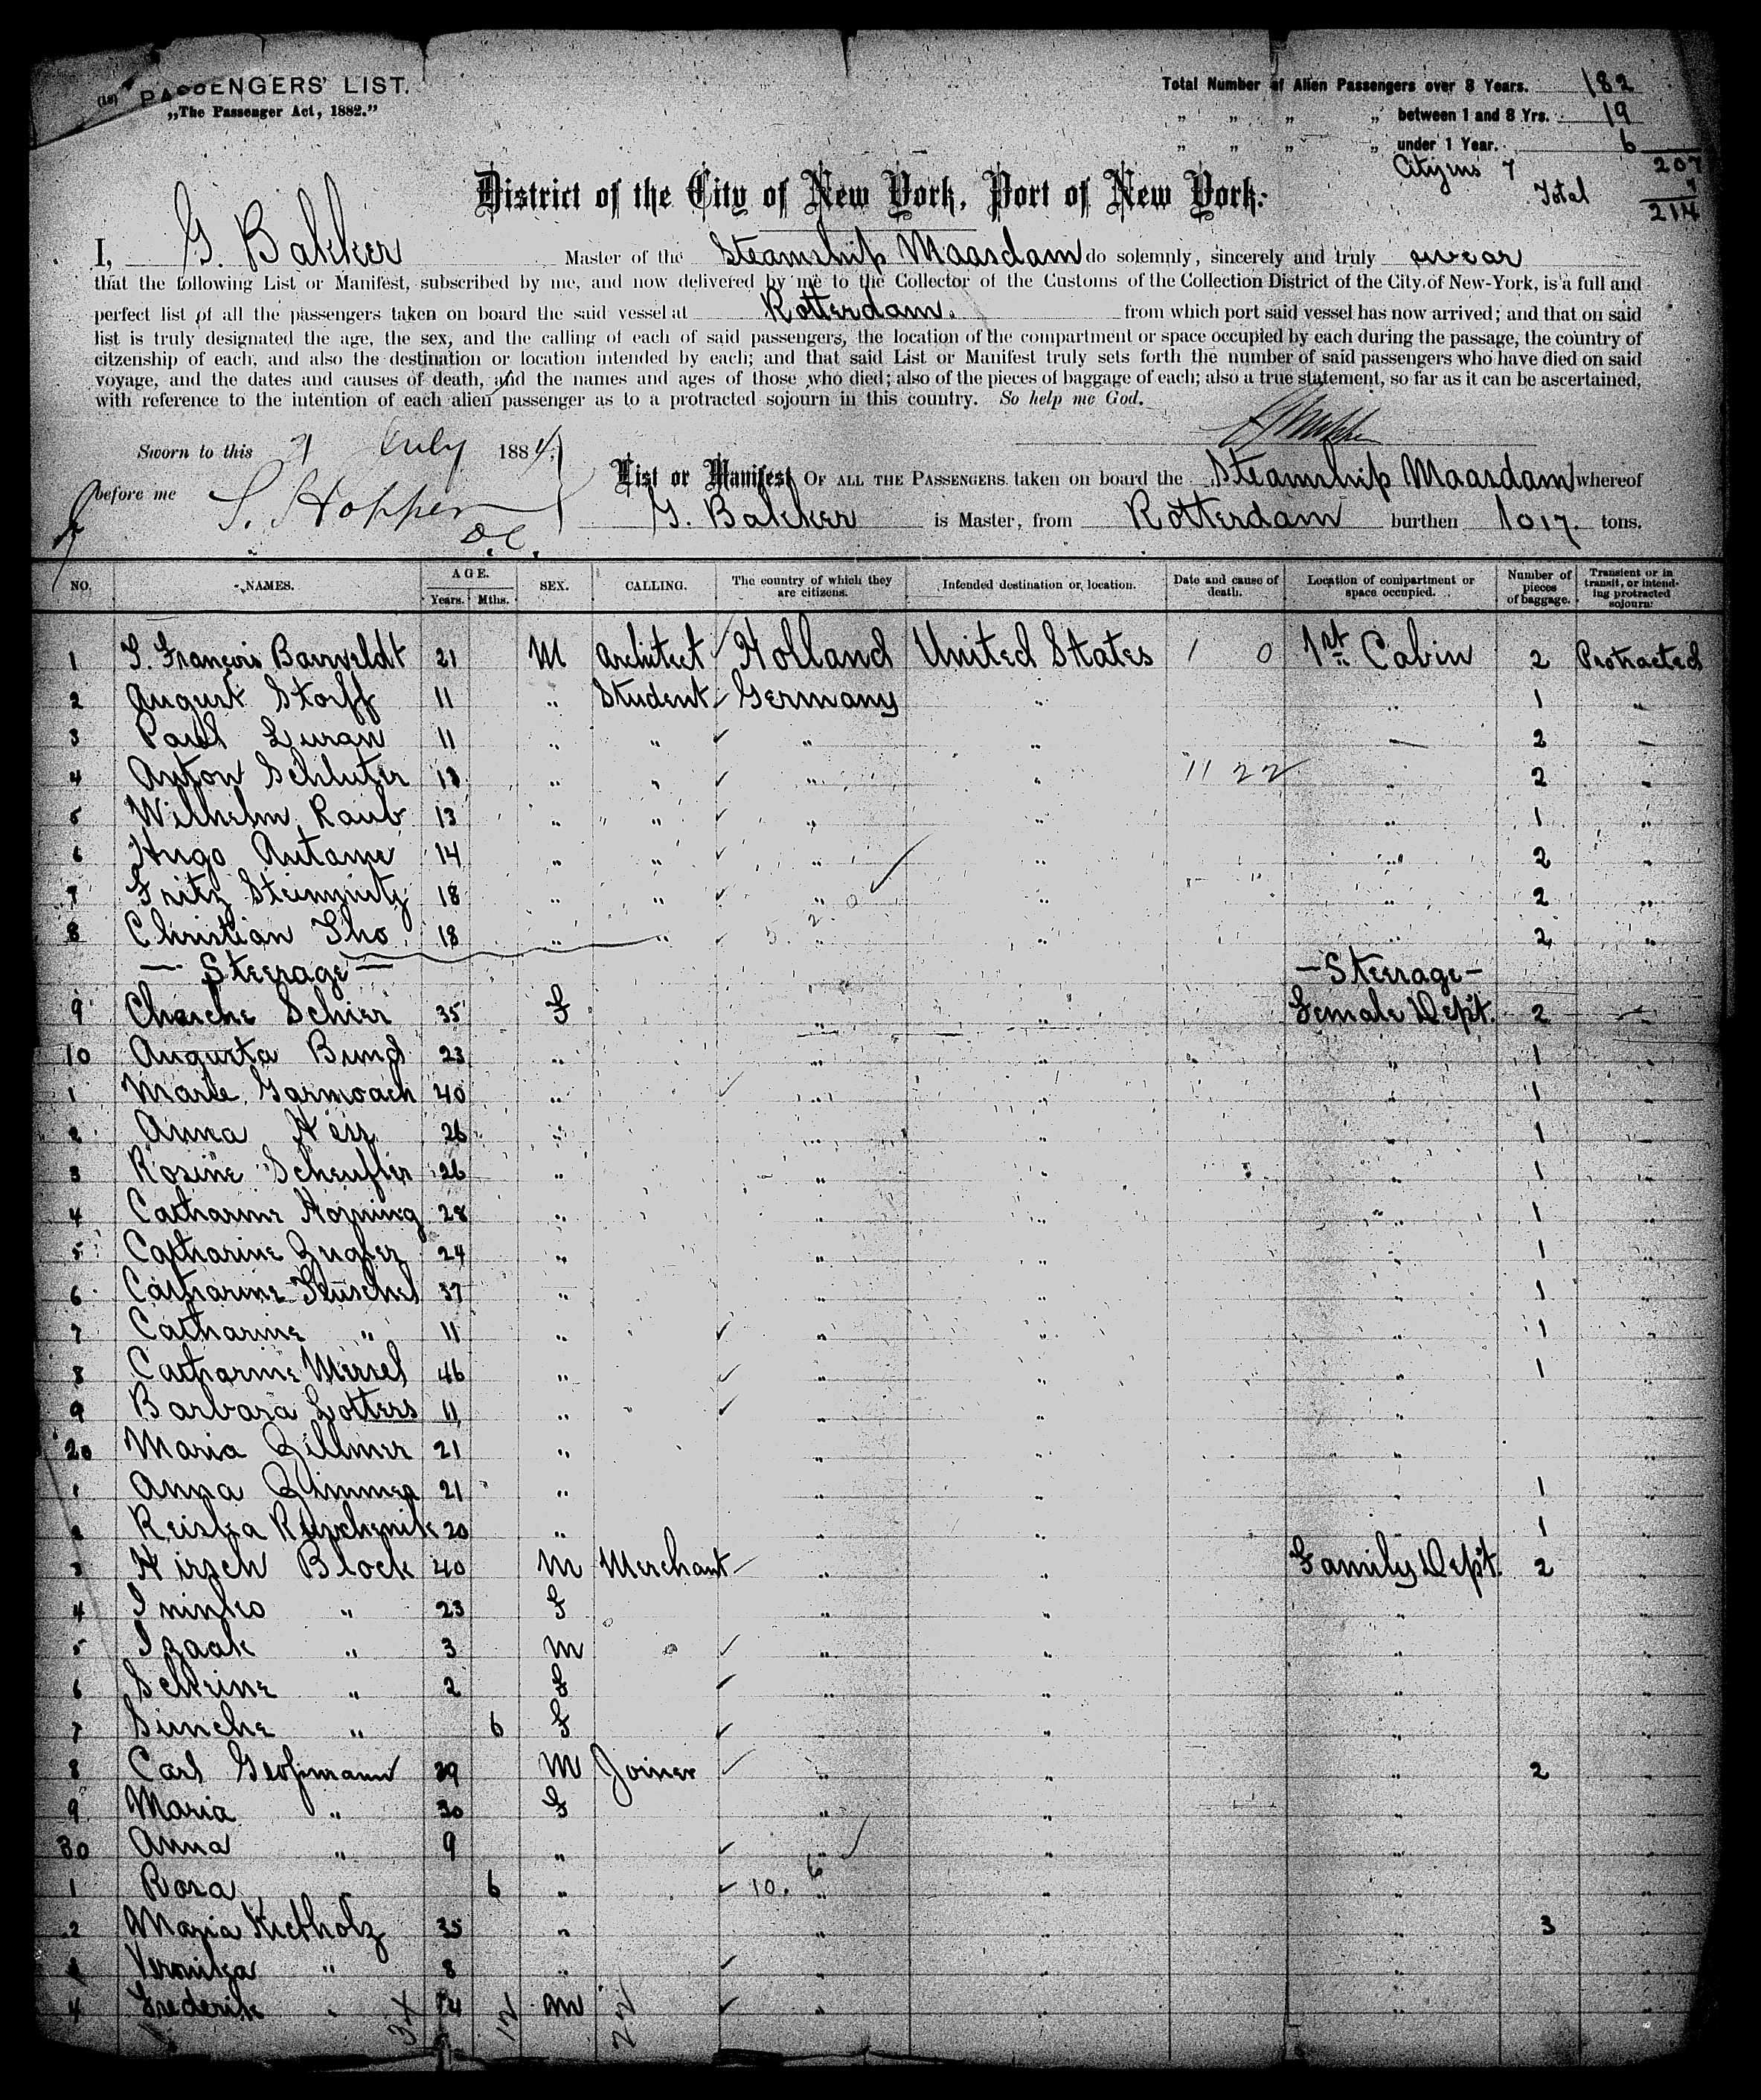 (18) PASSENGERS' LIST.
„The Passenger Act, 1882."
Total Number of Alien Passengers over 8 Years. 182
„ „ „ „ between 1 and 8 Yrs. 19
„ „ „ „ under 1 Year. 6
207
Citizens 7 7
Total 214
District of the City of New York, Port of New York:
I, G. Bakker Master of the Steamship Maasdam do solemnly, sincerely and truly swear
that the following List or Manifest, subscribed by me, and now delivered by me to the Collector of the Customs of the Collection District of the City of New-York, is a full and
perfect list of all the passengers taken on board the said vessel at Rotterdam. from which port said vessel has now arrived; and that on said
list is truly designated the age, the sex, and the calling of each of said passengers, the location of the compartment or space occupied by each during the passage, the country of
citzenship of each, and also the destination or location intended by each; and that said List or Manifest truly sets forth the number of said passengers who have died on said
voyage, and the dates and causes of death, and the names and ages of those who died; also of the pieces of baggage of each; also a true statement, so far as it can be ascertained,
with reference to the intention of each alien passenger as to a protracted sojourn in this country. So help me God.
Sworn to this July 1884,
before me S. Hopper
D.C.
List or Manifest OF ALL THE PASSENGERS taken on board the Steamship Maasdam whereof
G. Bakker is Master, from Rotterdam burthen 1017. tons.
NO. NAMES. AGE. Years. Mths. SEX. CALLING. The country of which they are citizens. Intended destination or location. Date and cause of death. Location of compartment or space occupied. Number of pieces of baggage. Transient or in transit, or intending protracted sojourn:
1 François 21 M Architect Holland United States 1 0 1st Cabin 2 Protracted
2 August Storff 11 „ Student Germany „ „ 1 „
3 Paul 11 „ „ „ „ 2
4 Anton Schluter 13 „ „ „ „ 11 22 2
5 Wilhelm Raub 13 „ „ „ „ „ 1 „
6 Hugo 14 „ „ „ „ „ 2 „
7 Fritz 18 „ „ „ „ „ 2 „
8 Christian Tho 18 „ „ „ „ „ 2 „
— Steerage — — Steerage —
9 Schier 35 F „ „ Female Dept. 2
10 Augusta Bund 23 „ „ „ „ 1 „
1 Marie Garmoach 40 „ „ „ „ 1 „
2 Anna 26 „ „ „ „ 1 „
3 Rosine Scheufler 26 „ „ „ „ 1 „
4 Catharine Horning 28 „ „ „ „ 1 „
5 Catharine 24 „ „ „ „ 1 „
6 Catharine 37 „ „ „ „ 1 „
7 Catharine „ 11 „ „ „ „ 1 „
8 Catharine 46 „ „ „ „ 1 „
9 Barbara Lotters 11 „ „ „ „ „
20 Maria Zillmer 21 „ „ „ „ „
1 Anna 21 „ „ „ „ 1 „
2 20 „ „ „ „ 1 „
3 Hirsch Block 40 M Merchant „ „ Family Dept. 2 „
4 „ 23 F „ „ „ „
5 Izaak „ 3 M „ „ „ „
6 Scheine „ 2 F „ „ „ „
7 „ 6 F „ „ „ „
8 Carl 39 M Joiner „ „ „ 2 „
9 Maria „ 30 F „ „ „ „
30 Anna „ 9 „ „ „ „ „
1 Rosa „ 6 „ 10. 6 „ „ „ „
2 Maria 35 „ „ „ „ 3 „
3 Veronika „ 8 „ „ „ „ „
4 Frederik „ 14 M „ „ „ „
34 12 22